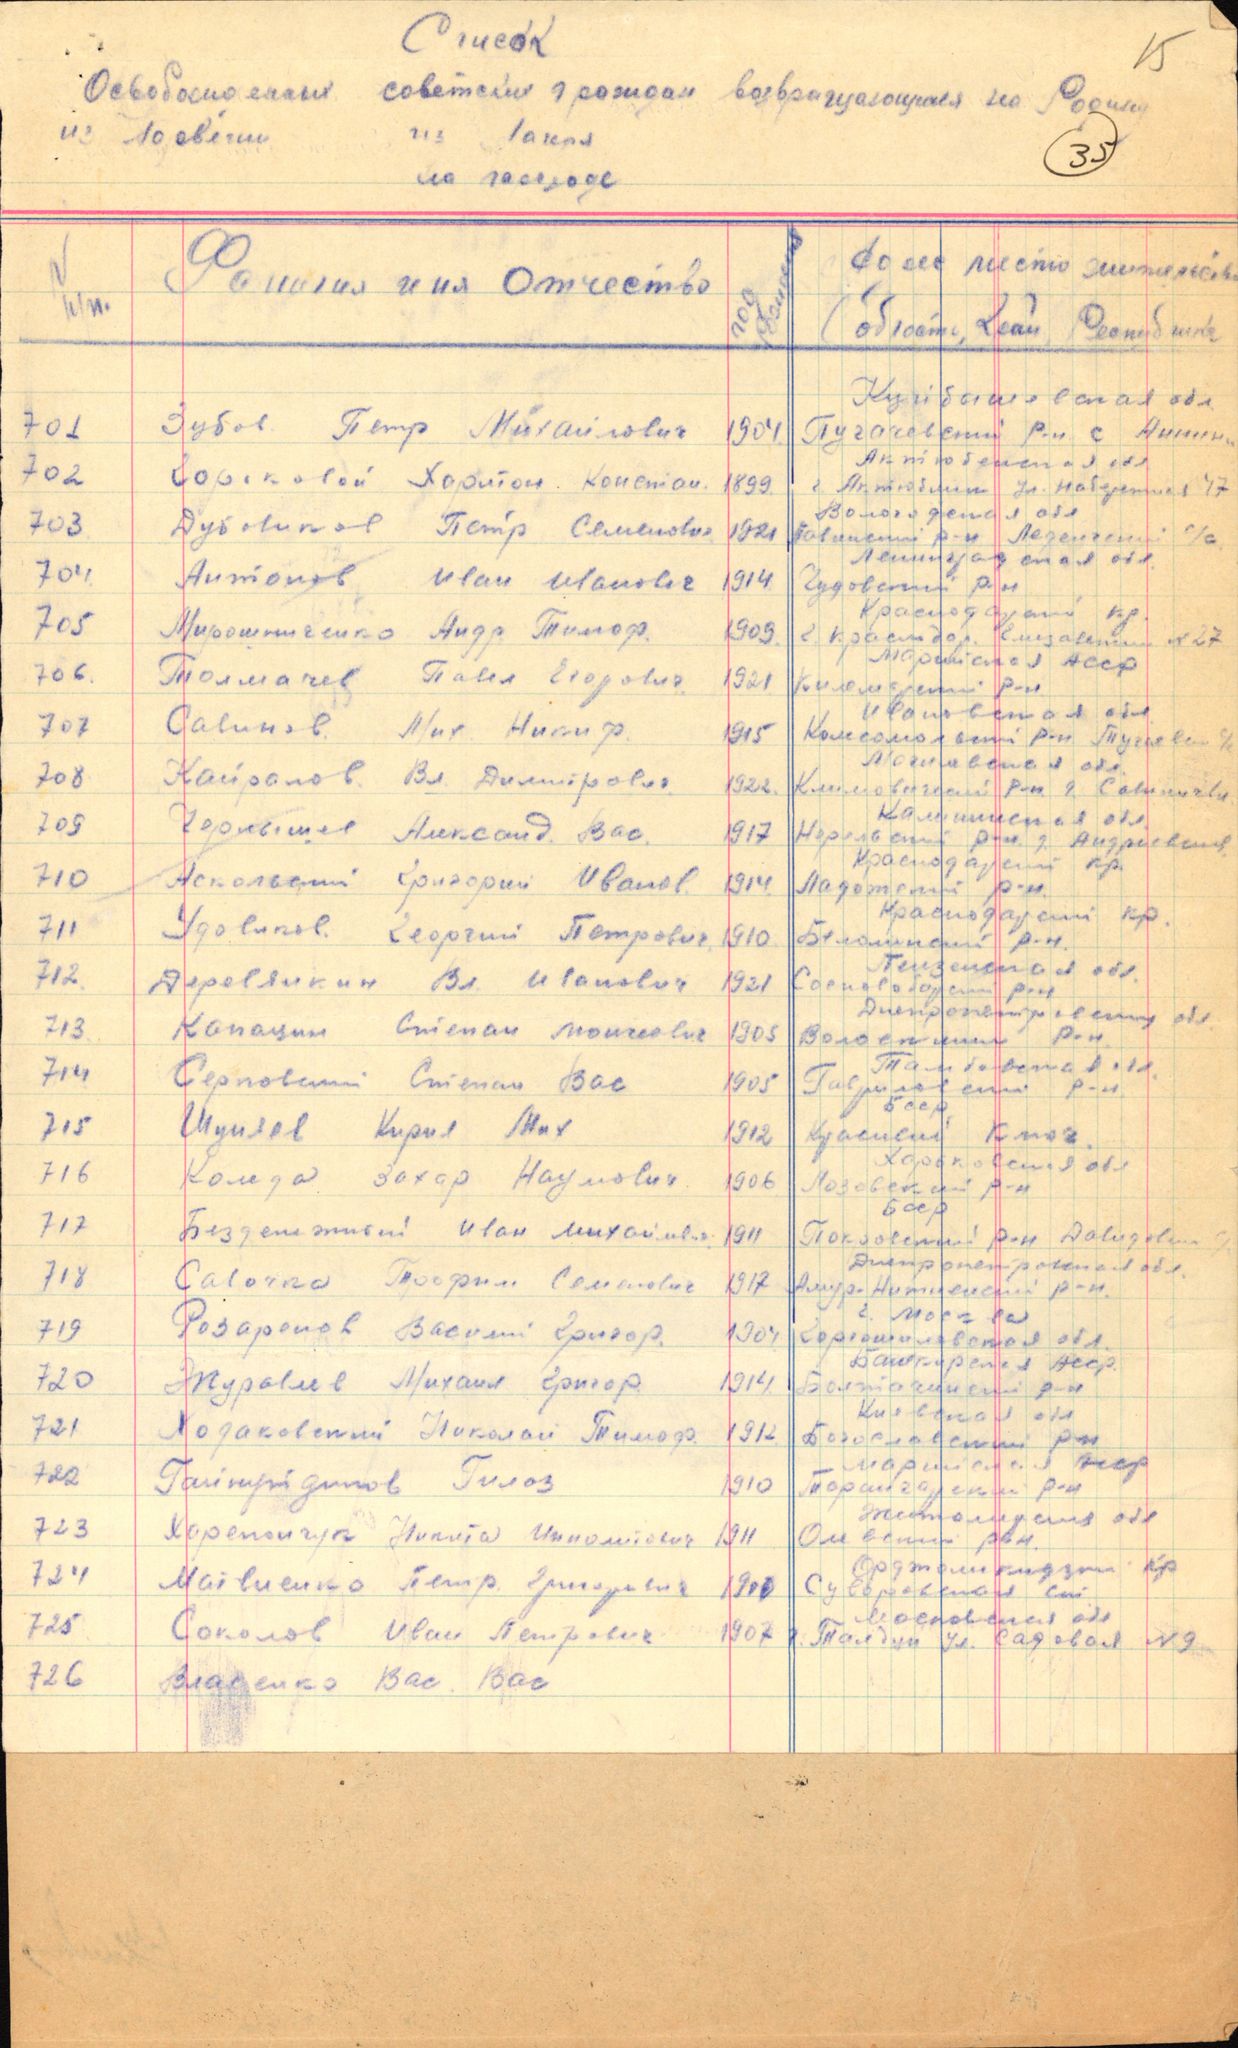 15
Список
Освобожденных советских граждан возвращающихся на Родину
из Норвегии из лагеря
35
на пароходе
N п/п. Фамилия имя Отчество год рождения место жительства
(область, Край, Республика
Куйбышевская обл.
701 Зубов Петр Михайлович 1904 Пугачевский р-н с
Актюбенская обл
702 Харитон Констан. 1899 г. Актюбинск ул. Набережная 47
Вологодская обл
703 Дубовиков Петр Семенович 1921 р-н с/с
Ленинградская обл.
704 Антонов Иван Иванович 1914 Чудовский р-н
Краснодарский кр.
705 Мирошниченко Андр Тимоф. 1909 г. Краснодар. N 27
Марийская АССР
706. Толмачев Павел Егорович 1921 Килемарский р-н
Ивановская обл
707 Савинов. Мих Никиф. 1915 Комсомольский р-н
Могилевская обл.
708 Кайралов. Вл. Димитрович 1922. Климовичский р-н д.
Калининская обл.
709 Чернышев Александ. Вас. 1917 р-н д. Андреевская
Краснодарский кр.
710 Аскольский Григорий Иванов. 1914 Ладожский р-н.
Краснодарский кр.
711 Удовиков. Георгий Петрович 1910 р-н.
Пензенская обл.
712. Деревянкин Вл. Иванович 1921 Сосновоборский р-н
Днепропетровская обл
713 Капацин Степан Моисеевич 1905 р-н.
Тамбовская обл.
714 Серповский Степан Вас 1905 Гавриловский р-н.
БССР
715 Шуняев Кирил Мих 1912 Красный Ключ.
Харьковская обл
716 Коледа Захар Наумович 1906 Лозовский р-н
БССР
717 Безденежный Иван Михайлович 1911 р-н
Днепропетровская обл.
718 Савочка Трофим Семенович 1917 Амур-Нижнеднский р-н.
г. Москва
719 Розаренов Василий Григор. 1904 Ворошиловская обл.
Башкирская АССР.
720 Журавлев Михаил Григор. 1914 Балтачинский р-н
Киевская обл
721 Ходаковский Николай Тимоф. 1912 Богославский р-н
Марийская АССР
722 Гилоз 1910 р-н
Житомирская обл
723 Никита 1911 Олевский р-н.
Орджоникидзский кр
724 Матвиенко Петр. Григорьевич 1900 Суворовская ст
Московская обл
725 Соколов Иван Петрович 1907 г. Талдун ул. Садовая N 9
726 Власенко Вас. Вас